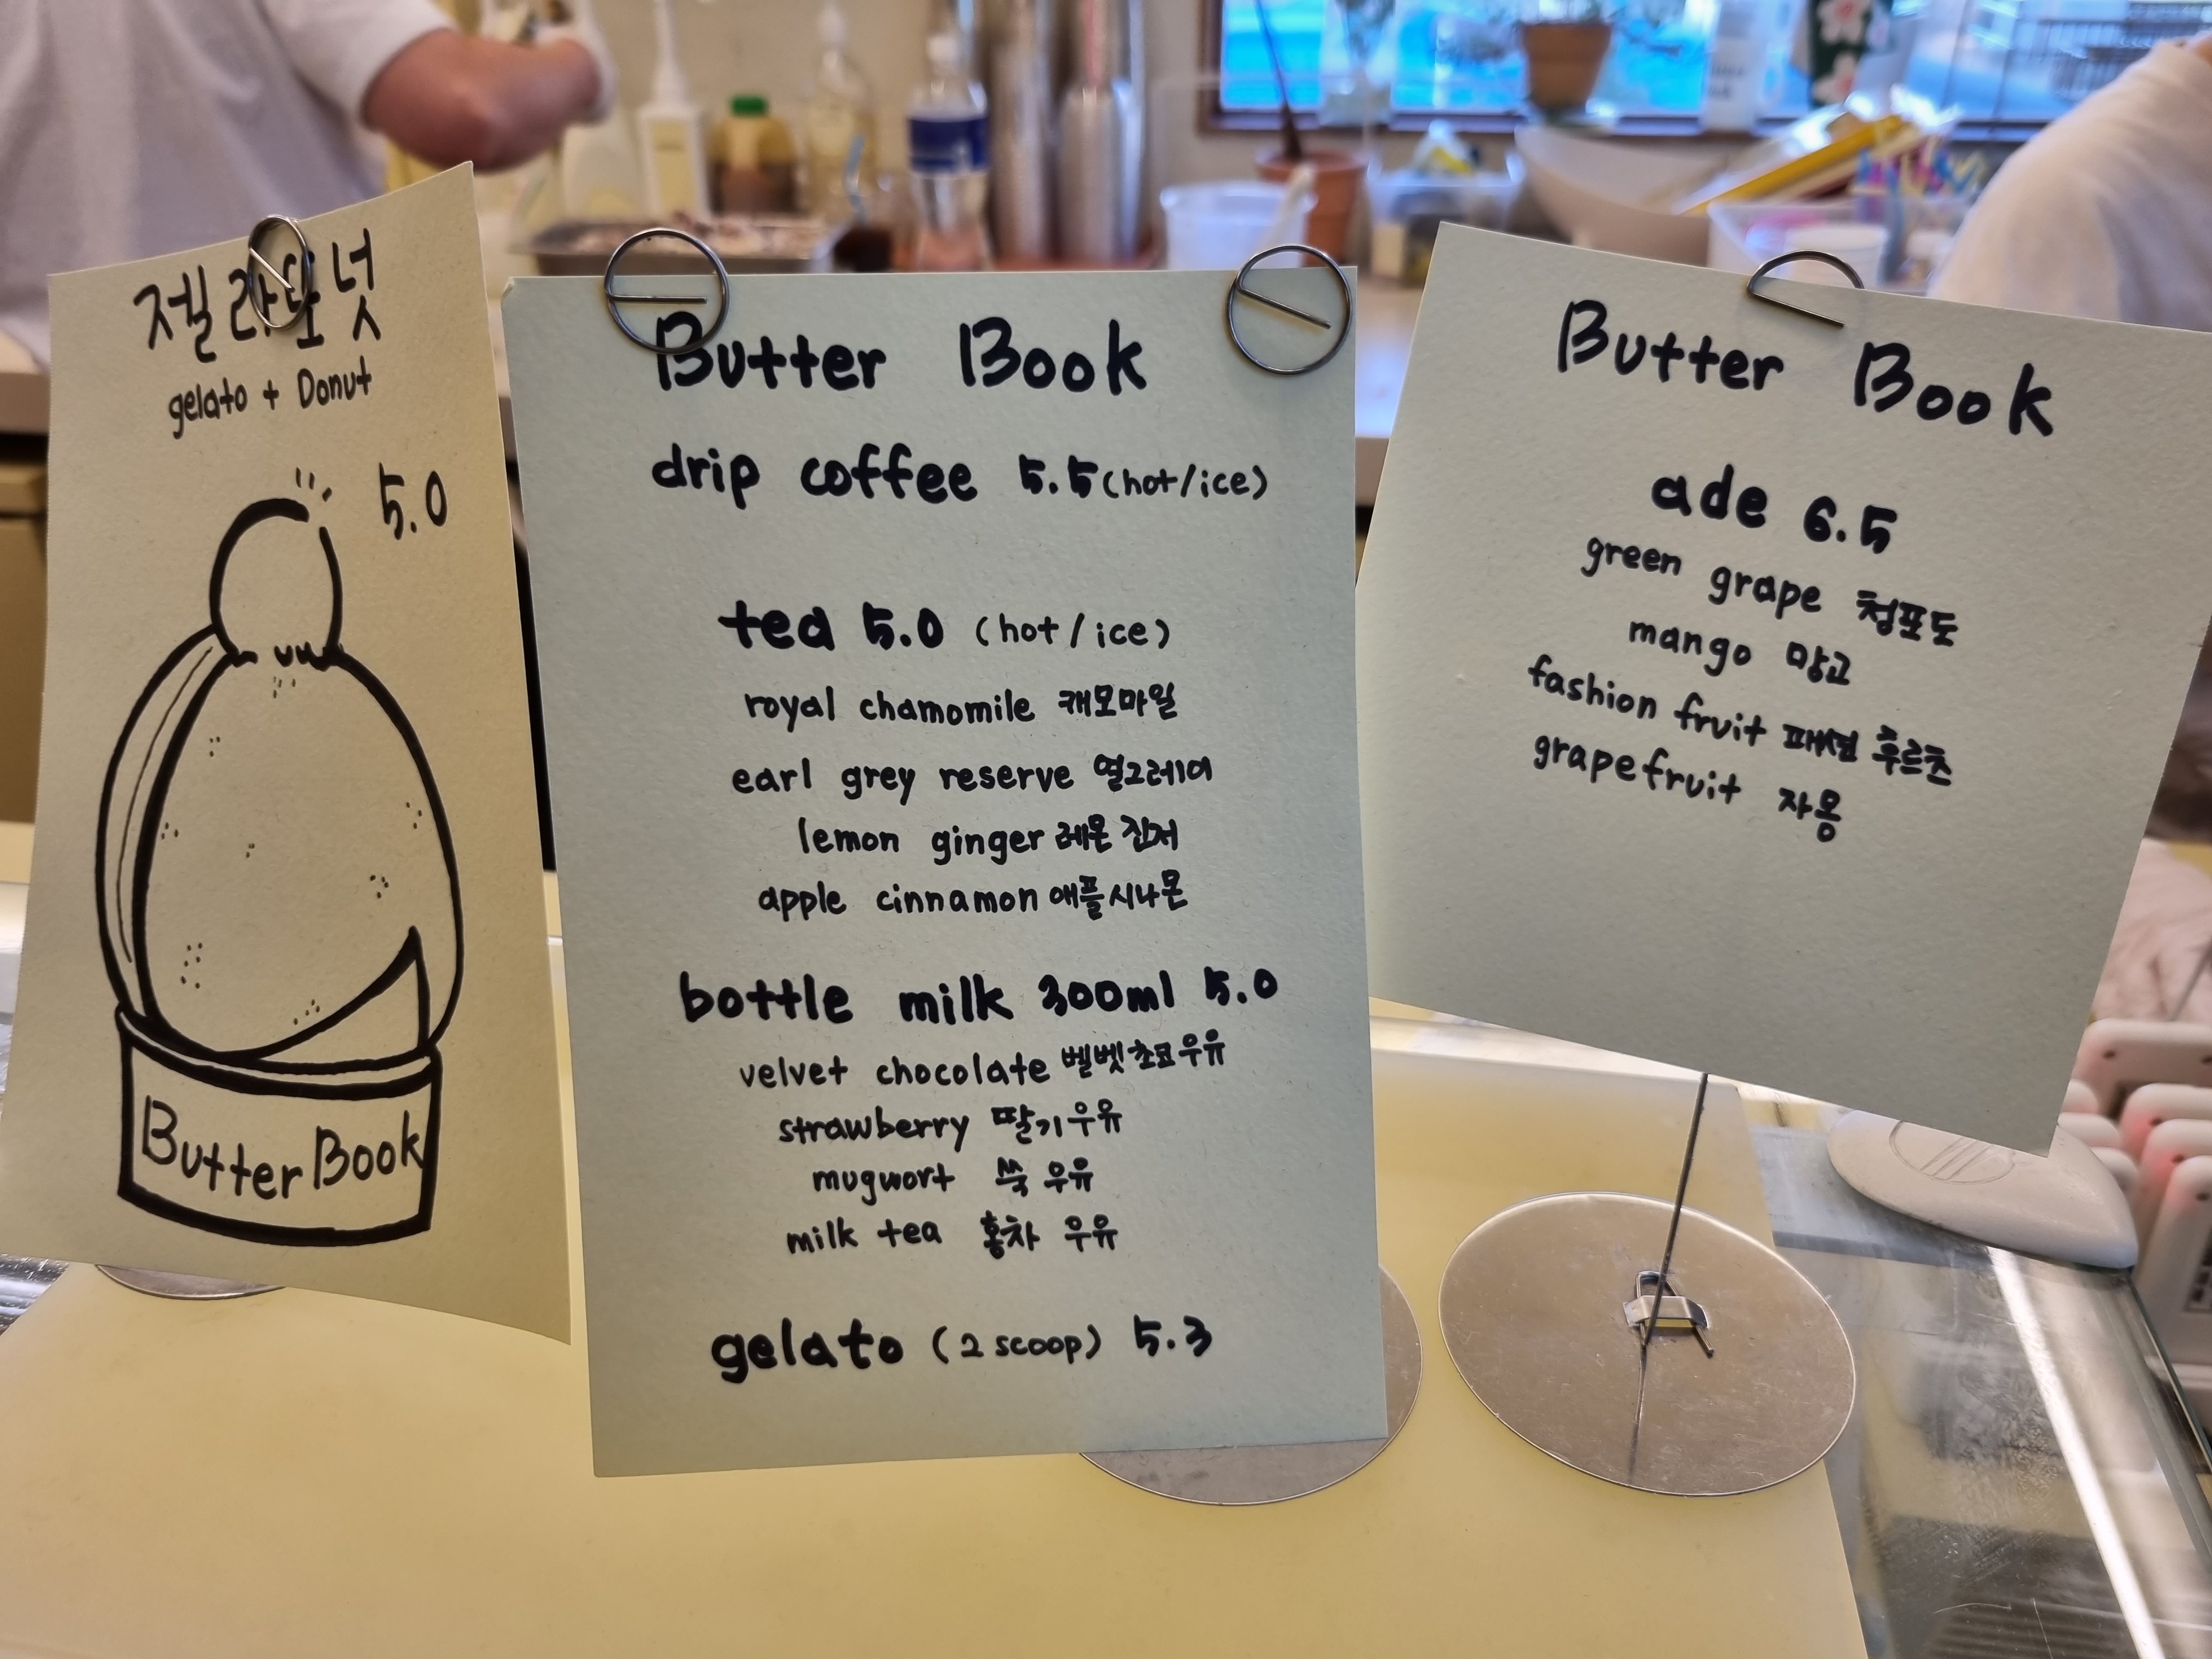 젤라또넛
gelato + Donut
5.0
Butter Book
Butter Book
drip coffee 5.5 (hot/ice)
tea 5.0 (hot/ice)
royal chamomile 캐모마일
earl grey reserve 얼그레이
lemon ginger 레몬 진저
apple cinnamon 애플시나몬
bottle milk 300ml 5.0
velvet chocolate 벨벳초코우유
strawberry 딸기우유
mugwort 쑥 우유
milk tea 홍차 우유
gelato (2 scoop) 5.3
Butter Book
ade 6.5
green grape 청포도
mango 망고
fashion fruit 패션 후르츠
grapefruit 자몽